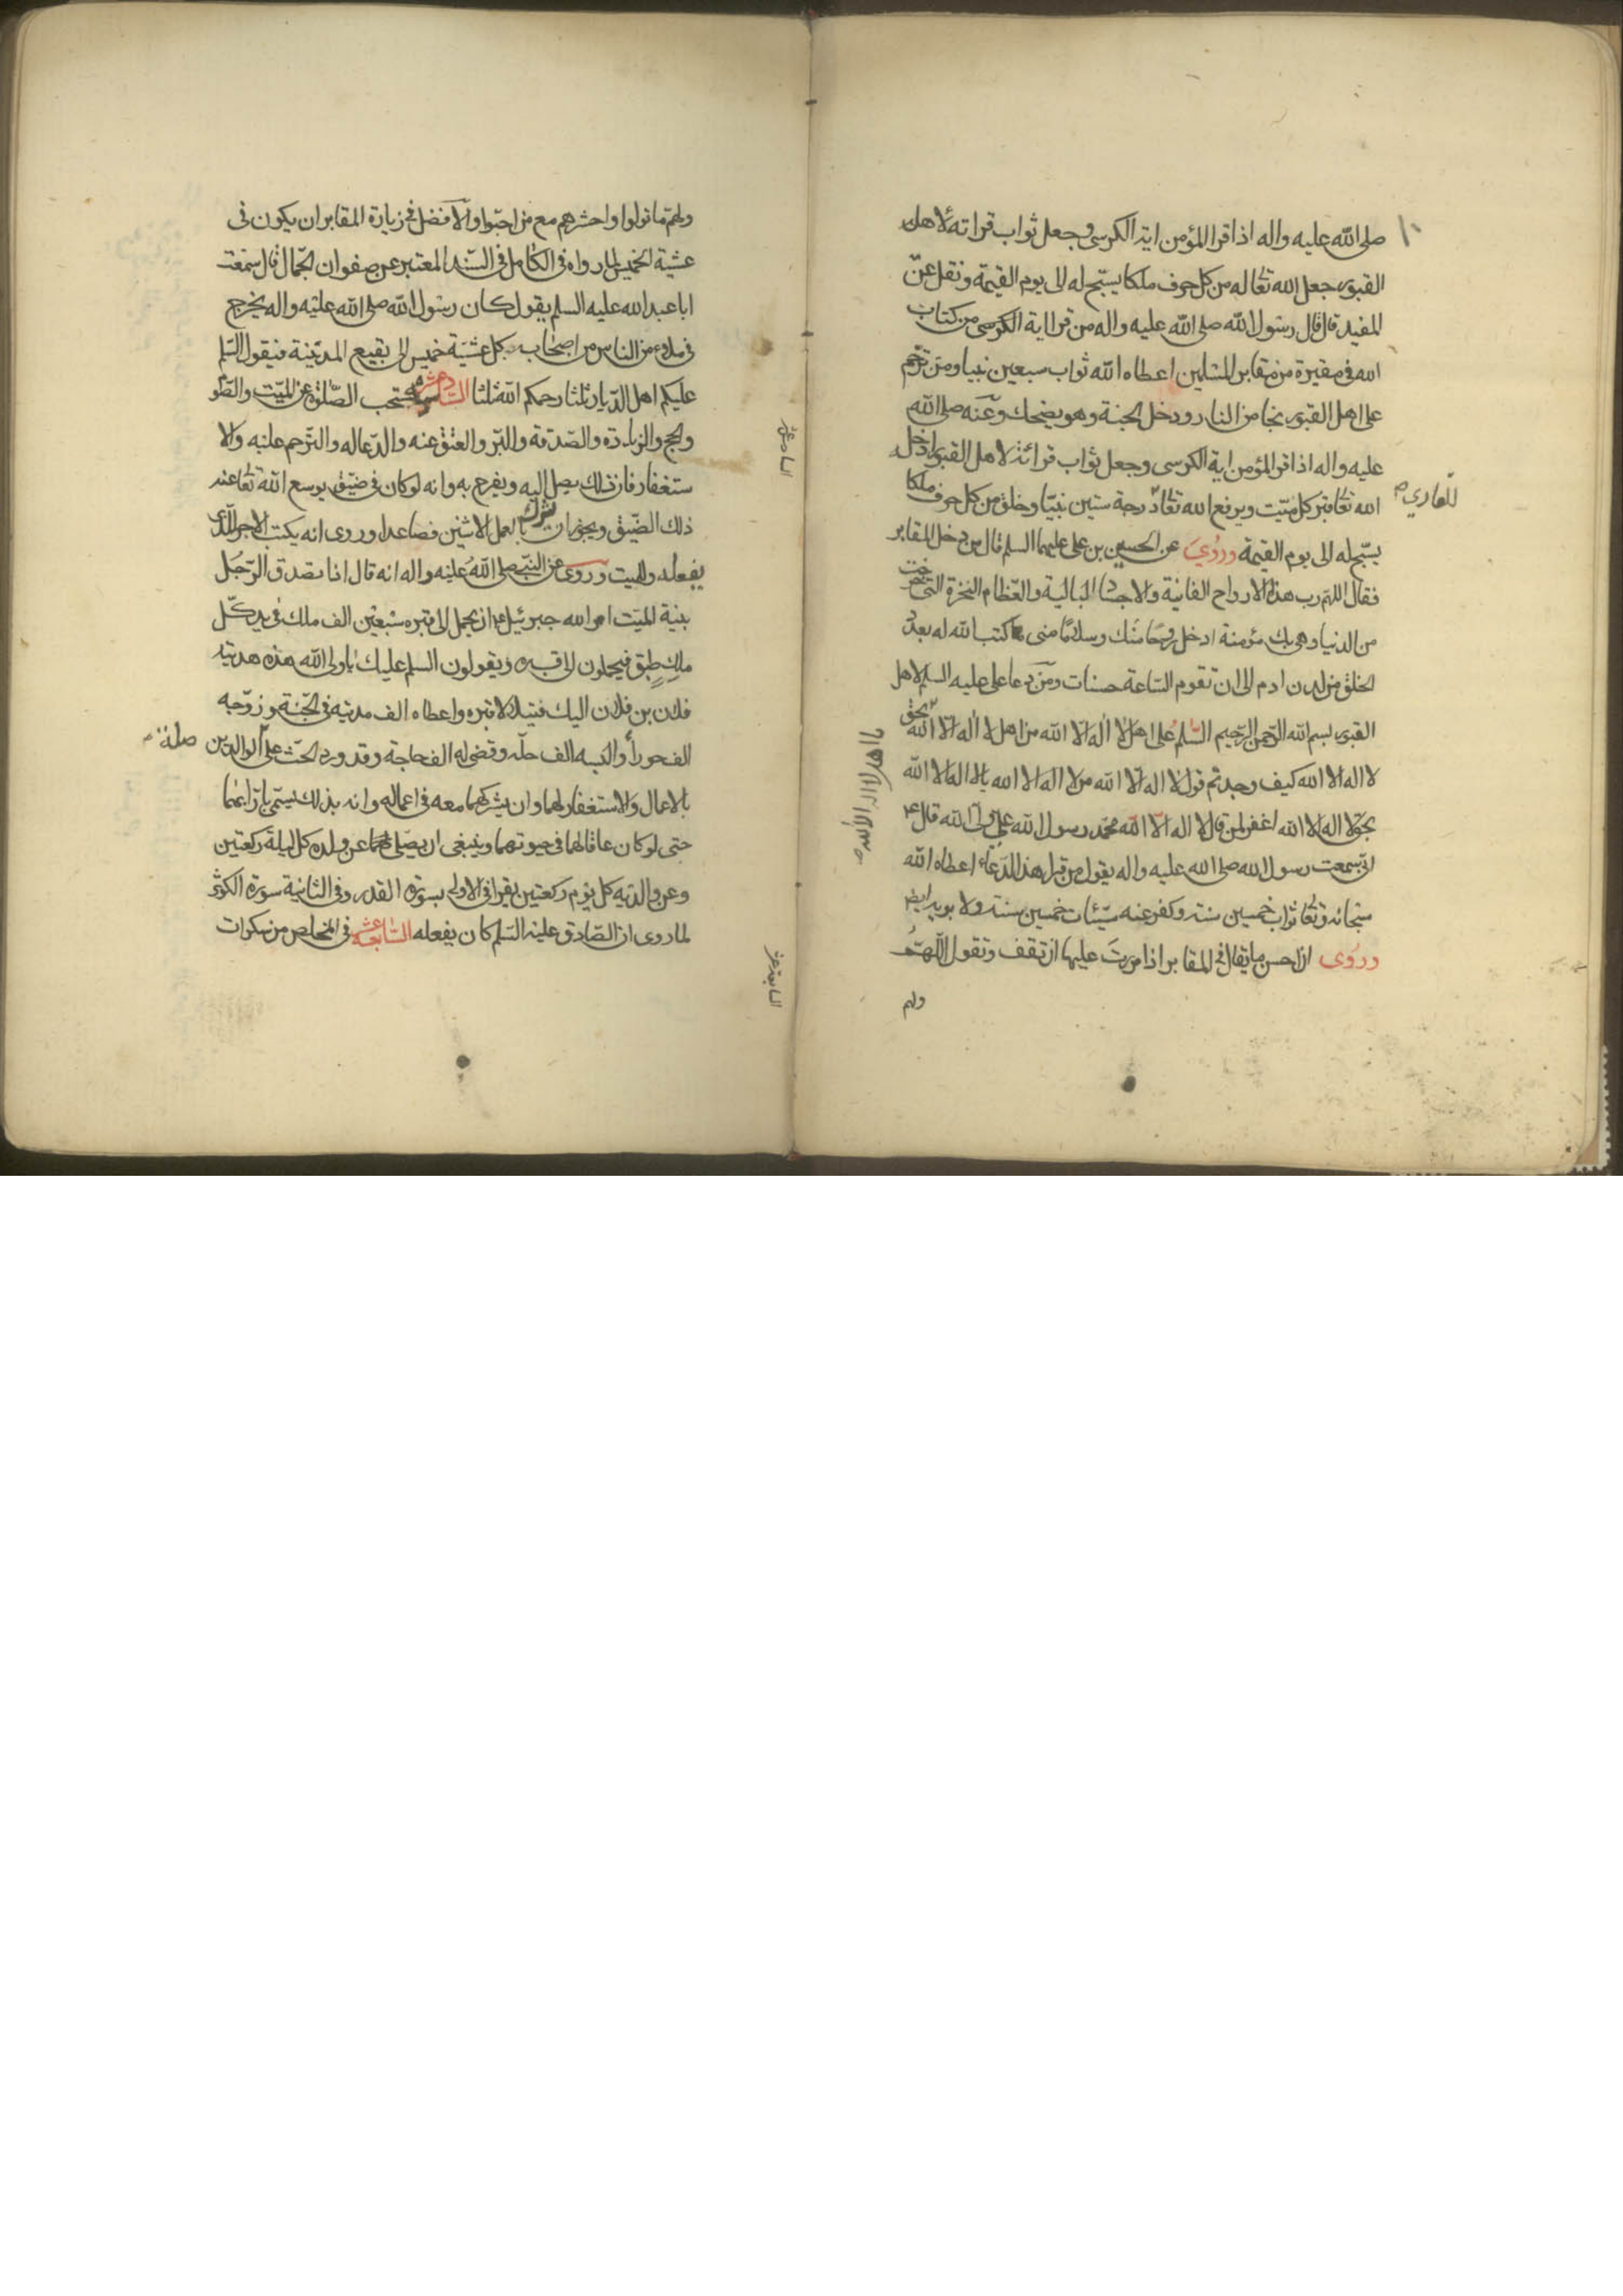 ١٠
صلى الله عليه واله اذا قرا المؤمن اية الكرسى وجعل ثواب قراته لاهل
القبور جعل الله تعا له من كل حرف ملكا يسبّح له الى يوم القيمة ونقل عن
المفيد قال قال رسول الله صلى الله عليه واله من قرا اية الكرسى من كتاب
الله فى مقبرة من مقابر المسلمين اعطاه الله ثواب سبعين نبيا ومن ترحّم
على اهل القبور نجا من النار ودخل الجنة وهو يضحك وعنه صلى الله
عليه واله اذا قرا المؤمن اية الكرسى وجعل ثواب قرائته لاهل القبور ادخل
الله تعا قبر كل ميّت ويرفع الله تعا درجة ستين نبيّا وخلق من كل حرف ملكا
يسبّح له الى يوم القيمة وروُيَ عن الحسين بن على عليهما السلم قال من دخل المقابر
فقال اللهم رب هذه الارواح الفانية والاجساد البالية والعظام النخرة التى خرجت
من الدنيا وهى بك مؤمنة ادخل روحًا منك وسلامًا منى كتب الله له بعدد
الخلق من لدن ادم الى ان تقوم السّاعة حسنات ومن دعا على عليه السلم لاهل
القبور بسم الله الرّحمن الرّحيم السّلم على اهل لا اله الا الله من اهل لا اله الا الله بحق
لا اله الا الله كيف وجدتم قول لا اله الا الله من لا اله الا الله يا لا اله الا الله
بحق لا اله الا الله اغفر لمن قال لا اله الا الله محمّد رسول الله علىّ ولى الله قال ع
انى سمعت رسول الله صلى الله عليه واله يقول من قرا هذا الدّعاء اعطاه الله
سبحانه وتعا ثواب خمسين سنة وكفر عنه سيّئات خمسين سنة ولابويه ايضا
وروُى ان احسن ما يقال فى المقابر اذا مررت عليها ان تقف وتقول اللّهمّ
ولهم
يا اهل لا اله الا الله ص
ولهم ما تولوا واحشرهم مع من احبّوا والافضل فى زيارة المقابر ان يكون فى
عشية الخميس لما رواه فى الكامل فى السّند المعتبر عن صفوان الجمّال قال سمعت
ابا عبد الله عليه السلم يقول كان رسول الله صلى الله عليه واله يخرج
فى ملاء من الناس من اصحابه كل عشيّة خميس الى بقيع المدينة فيقول السّلم
عليكم اهل الدّيار ثلثا رحمكم الله ثلثا السّادسة عشر يستحب الصّلوة عن الميّت والصّوم
والحج والزيادة والصّدقة والبّر والعتق عنه والدّعا له والترحم عليه والا
ستغفار فان ذلك يصل اليه ويفرح به وانه لو كان فى ضيّق يوسع الله تعا عنه
ذلك الضّيق ويجوز ان يشرك بالعمل الاثنين فصاعدا وروى انه يكتب الاجر للّذى
يفعله وللميت وروى عن النّبى صلى الله عليه واله انه قال اذا تصدق الرّجل
بنية الميّت امر الله جبرئيل ان يحمل الى قبره سبعين الف ملك فى يد كلّ
ملكٍ طبق فيحملون الى قبره ويقولون السلم عليك يا ولى الله هذه هدية
فلان بن فلان اليك فيتلالا قبره واعطاه الف مدينة فى الجّنة وزوّجه
الف حوراً والبسه الف حلّه وقضى له الف حاجة وقد ورد الحّث على الوالدين
صلة
بالاعمال والاستغفار لهما وان يشركهما معه فى اعماله وانه بذلك يسمّى بارّا بهما
حتى لو كان عاقا لهما فى حيوتهما وينبغى ان يصلّى عن ولده كل ليلة ركعتين
وعن والديه كل يوم ركعتين يقرا فى الاولى بسورة القدر وفى الثانية سورة الكوثر
لما روى ان الصّادق عليه السّلم كان يفعله السّابعة عشر فى المخلص من سكرات
السادسة عشر
السابعة عشر